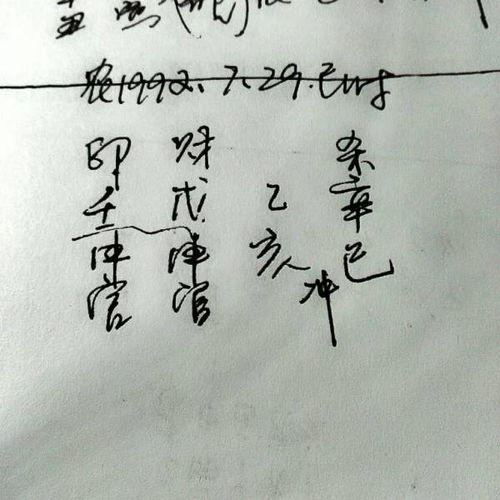 农1992.7.29.巳时
印 财 杀
壬 戊 乙 辛
申 申 亥 巳
官 官 冲